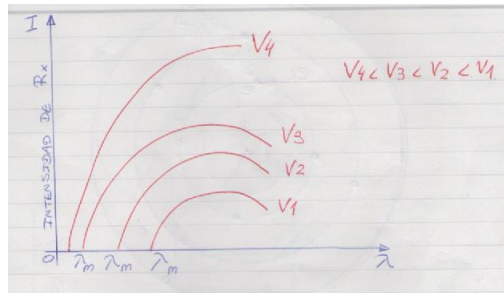 I
INTENSIDAD DE Rx
V4
V4 < V3 < V2 < V1
V3
V2
V1
0 λm λm λm λ